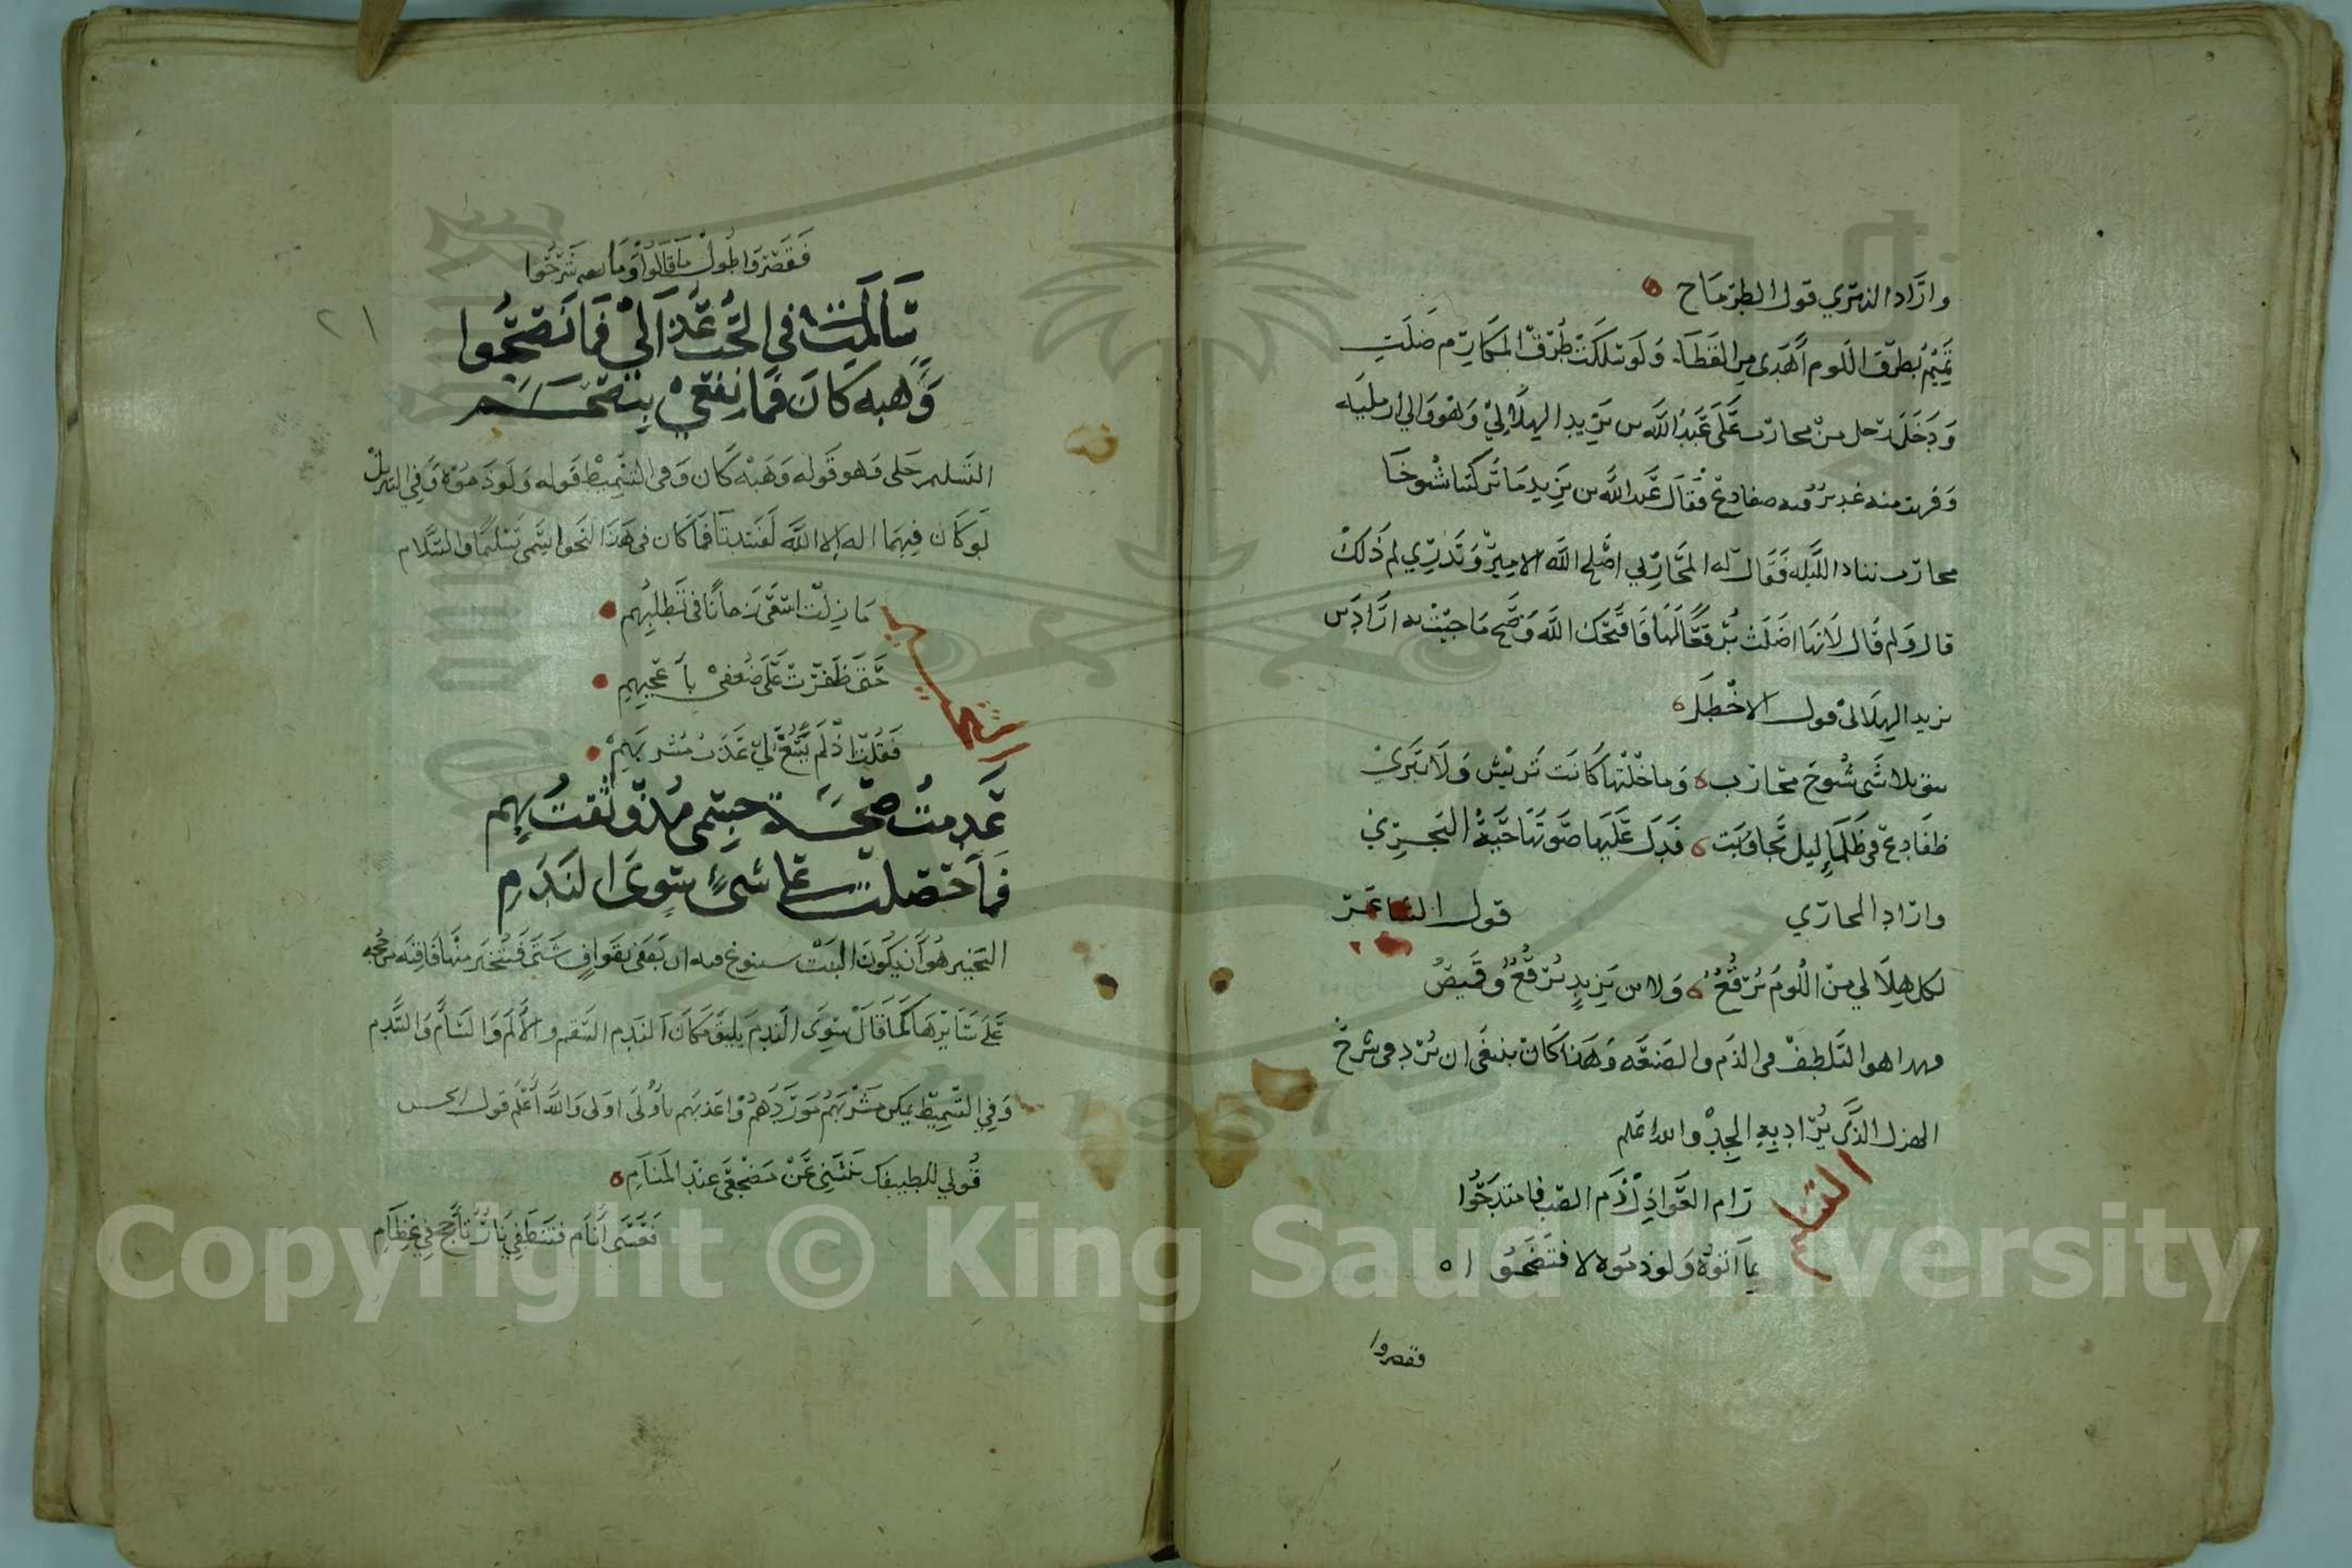 واراد النميري قول الطرماح
تميم بطرق اللوم أهدى من القطا ولو سلكت طرق المكارم ضلت
ودخل رجل من محارب على عبد الله بن يزيد الهلالي وهو والي ارمينيه
وقريب منه غدير فيه ضفادع فقال عبد الله بن يزيد ما تركتنا شيوخ
محارب ننام الليله فقال له المحاربي اصلح الله الامير وتدري لم ذلك
قال ولم قال لانها اضلت برقعا لها قال قبحك الله وقبح ما جيت به اراد بن
يزيد الهلالي قول الاخطل
تنق بلا شي شيوخ محارب وما خلتها كانت تريش ولا تبري
ظفادع في ظلماء ليل تجاوبت فدل عليها صوتها حية البحر
واراد المحاربي قول الشاعر
لكل هلالي من اللوم برقع ولابن يزيد برقع وقميص
وهذا هو التلطف في الذم والصنعه وهذا كان ينبغي ان يرد في شرح
الهزل الذي يراد به الجد والله اعلم
التسليم
رام العواذل ذم الصب فامتدحوا
بما اتوه ولو ذموه لافتضحوا
فقصروا
٢١
فقصروا طول ما قالوا وما شرحوا
سالمت في الحب عذالي فما نصحوا
وهبه كان فما نفعي بنصحهم
التسليم جلي وهو قوله وهبه كان وفي التسميط قوله ولو ذموه وفي التنزيل
لو كان فيهما اله الا الله لفسدتا فما كان في هذا النحو يسمى تسليما والسلام
التخيير
ما زلت اتقى زمانا في تطلبهم
حتى ظفرت على ضعفي باعجبهم
فقلت اذ لم يسغ لي عذب مشربهم
عدمت صحة جسمي مذ وثقت بهم
فما حصلت على شيء سوى الندم
التخيير هو أن يكون البيت يسوغ فيه ان يقفى بقواف شتى فيتخير منها قافيه مرجحه
على سائرها كما قال سوى الندم يليق مكان الندم السقم والألم والسأم والندم
وفي التسميط يمكن مشربهم موردهم واعذبهم باولى اولى والله أعلم قول
قولي لطيفك ينثني عن مضجعي عند المنام
فعسى أنام فتنطفي نار تأجج في عظام